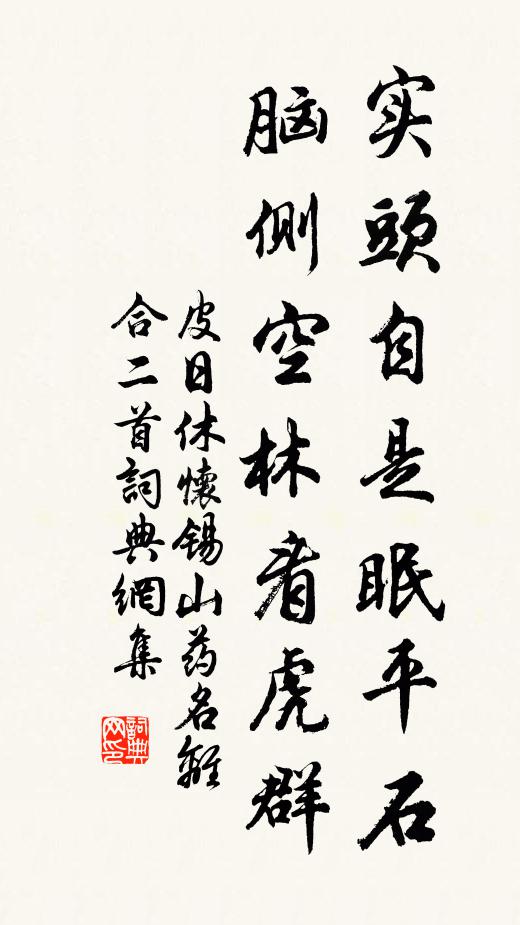 实頭自是眠平石
脑侧空林看虎群
皮日休懷锡山药名離
合二首詞典網集
詞典
网印